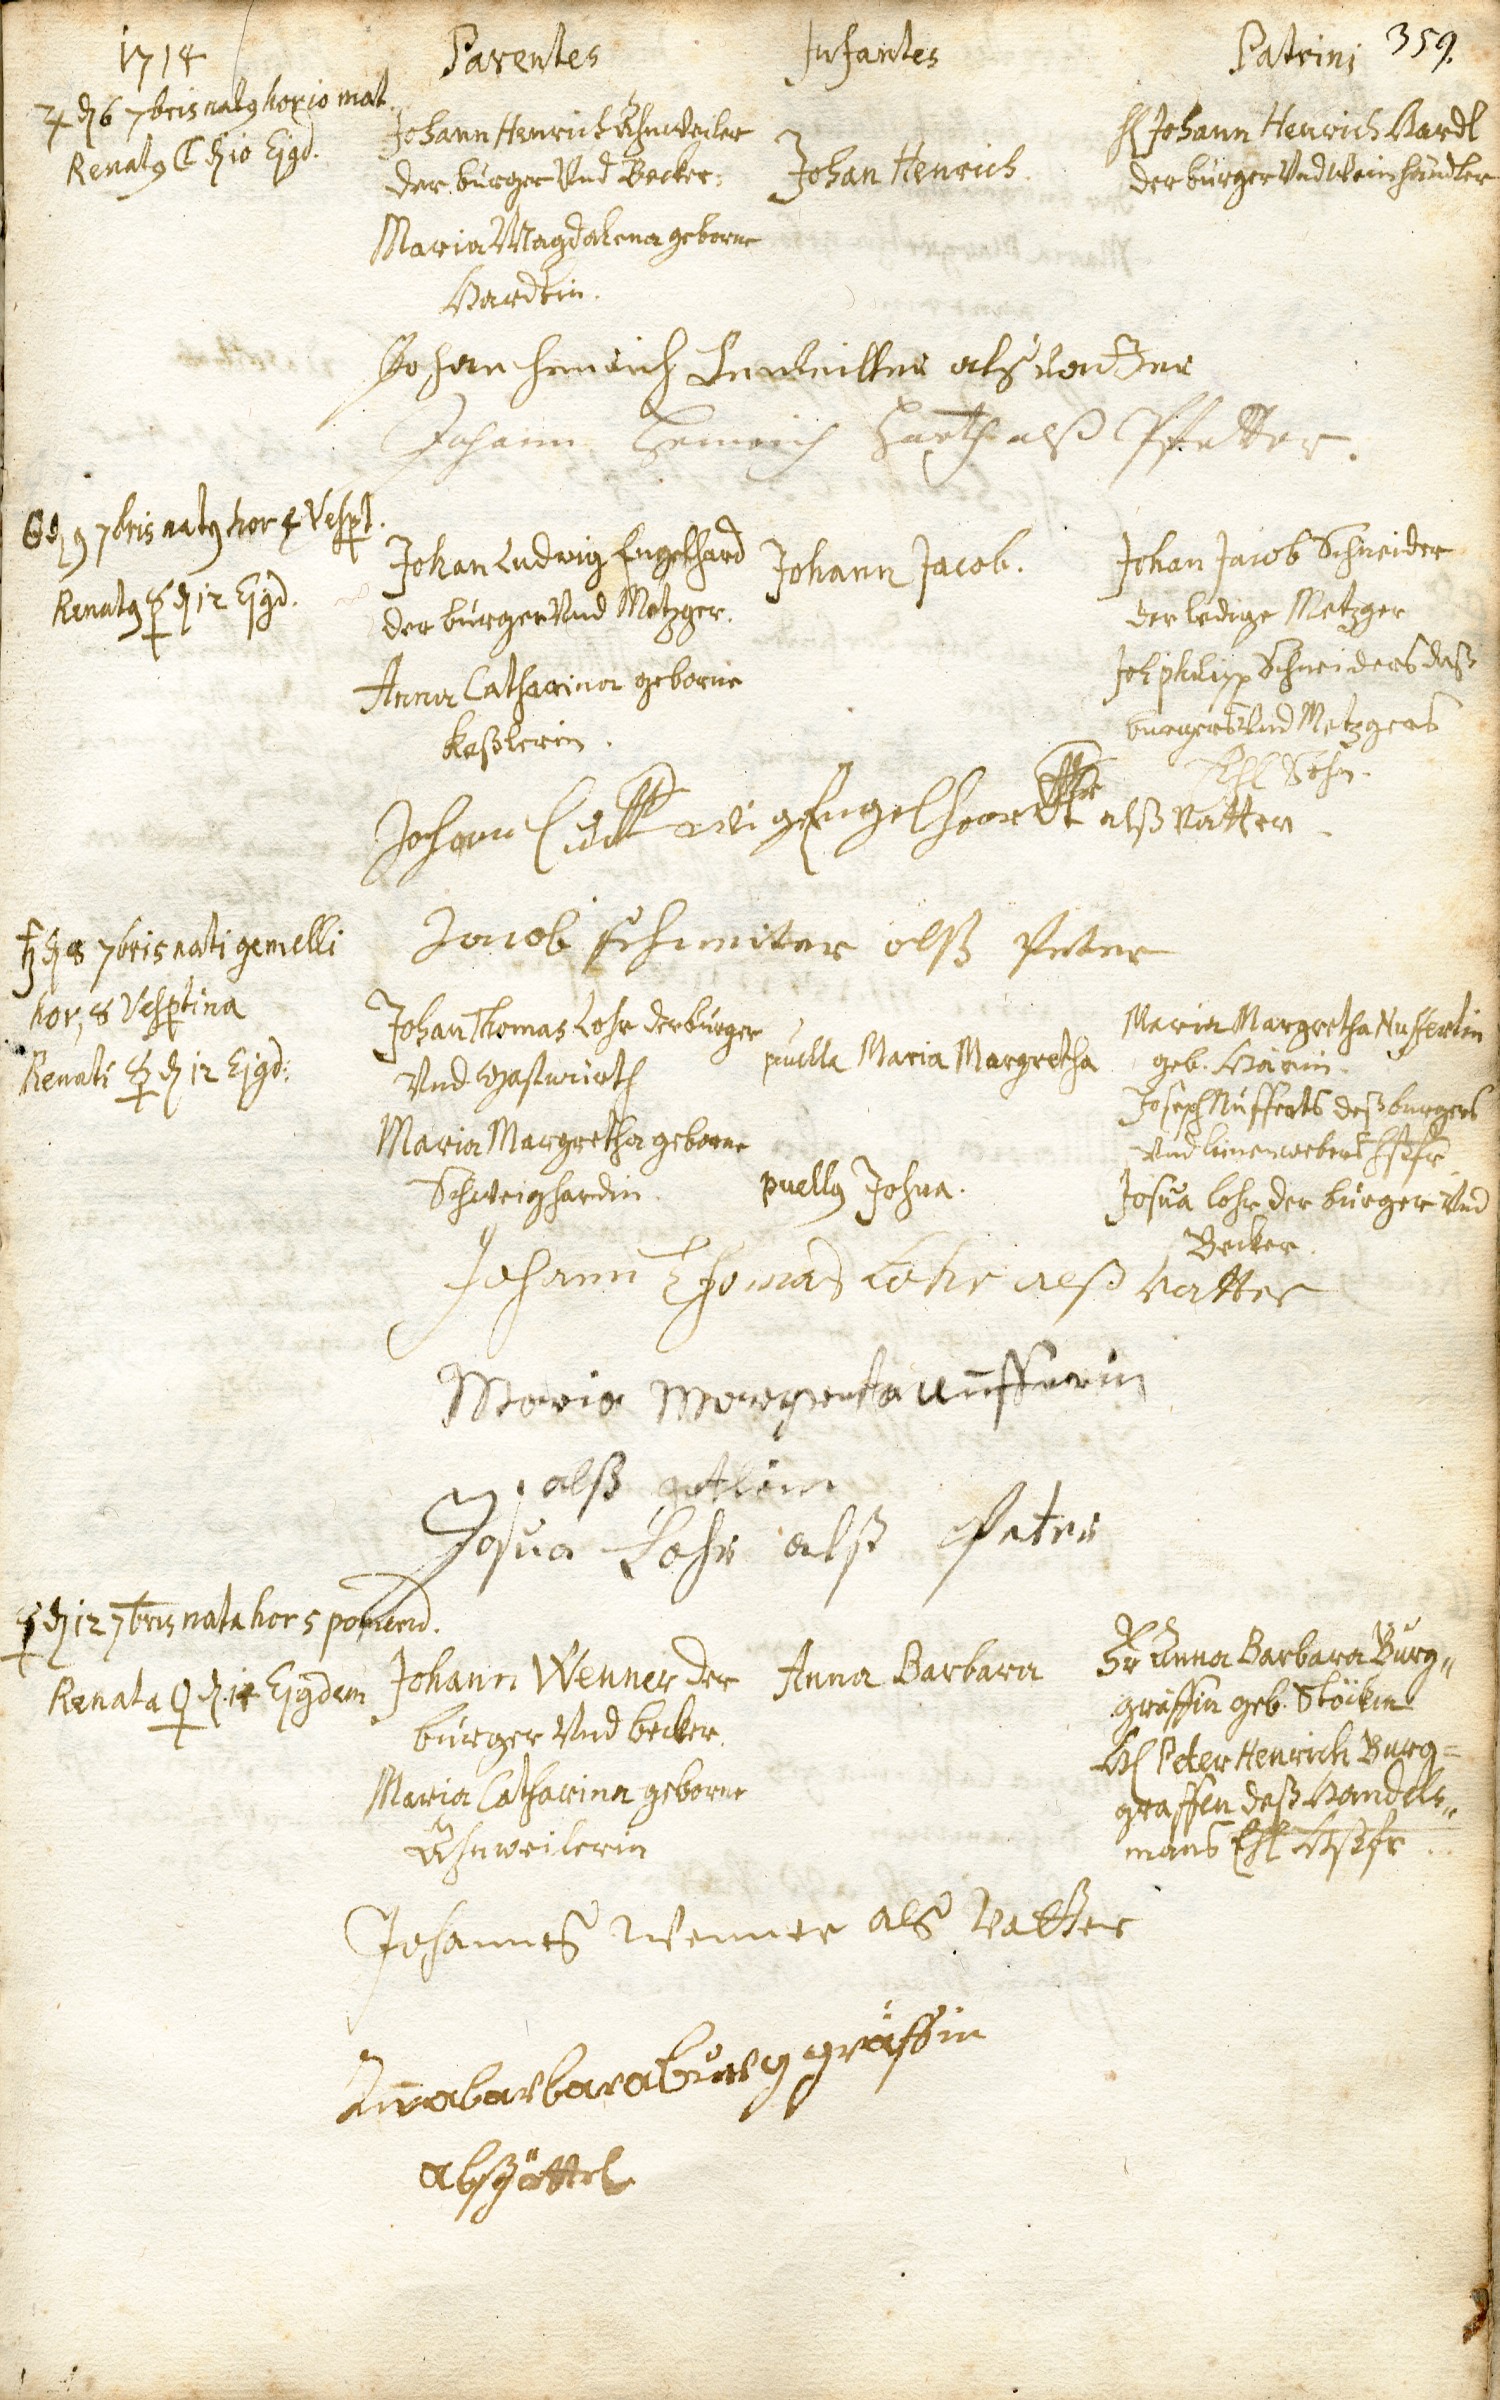 1714
Parentes
Infantes
Patrini
359.
♃ d 6 7bris nat9 hor 10 mat.
Renat9 ☾ d 10 Ejgd.
Johann Henrich Ehnweiler
der burger Vnd Becker.
Maria Magdalena geborne
Hardtin.
Johan Henrich.
H Johann Henrich Hardt
der burger Vnd Weinhändler
Johan Henrich alß Vatter
Johann Henrich Harth alß Pfetter.
d 9 7bris nat9 hor 4 Vespt.
Renat9 ☿ d 12 Ejgd.
Johan Ludwig Engelhard
der burger Vnd Metzger.
Anna Catharina geborne
Keßlerin.
Johann Jacob.
Johan Jacob Schneider
der ledige Metzger
Joh philipp Schneiders deß
burgers Vnd Metzgers
Ehl Sohn.
Johann Ludwig Engelhardt alß Vatter
Jacob schneiter alß Peter
♄ d 8 7bris nati gemelli
hor, 8 Vesptina
Renati ☿ d 12 Ejgd:
Johan Thomas Lohr der burger
Vnd Gastwürth
Maria Margretha geborne
Schweighardin.
puella Maria Margretha
puell9 Josua.
Maria Margretha Nuffertin
geb. Härin.
Joseph Nufferts deß burgers
Vnd leinenwebers Hßfr
Josua Lohr der burger Vnd
Becker.
Johann Thomas Lohr alß Vatter
Maria Margreta nufferin
alß
Josua Lohr alß Peter
☿ d 12 7bris nata hor 5 pomerid.
Renata ♀ d. 14 Ejgdem
Johann Wenner der
burger Vnd becker.
Maria Catharina geborne
Ehnweilerin
Anna Barbara
Fr Anna Barbara Burg„
gräffin geb. Stöckin
H Peter Henrich Burg=
graffen deß Handels„
mans Ehl Hßfr
Johannes Wenner als Vatter
Anabarbara burggräffin
alß göttel